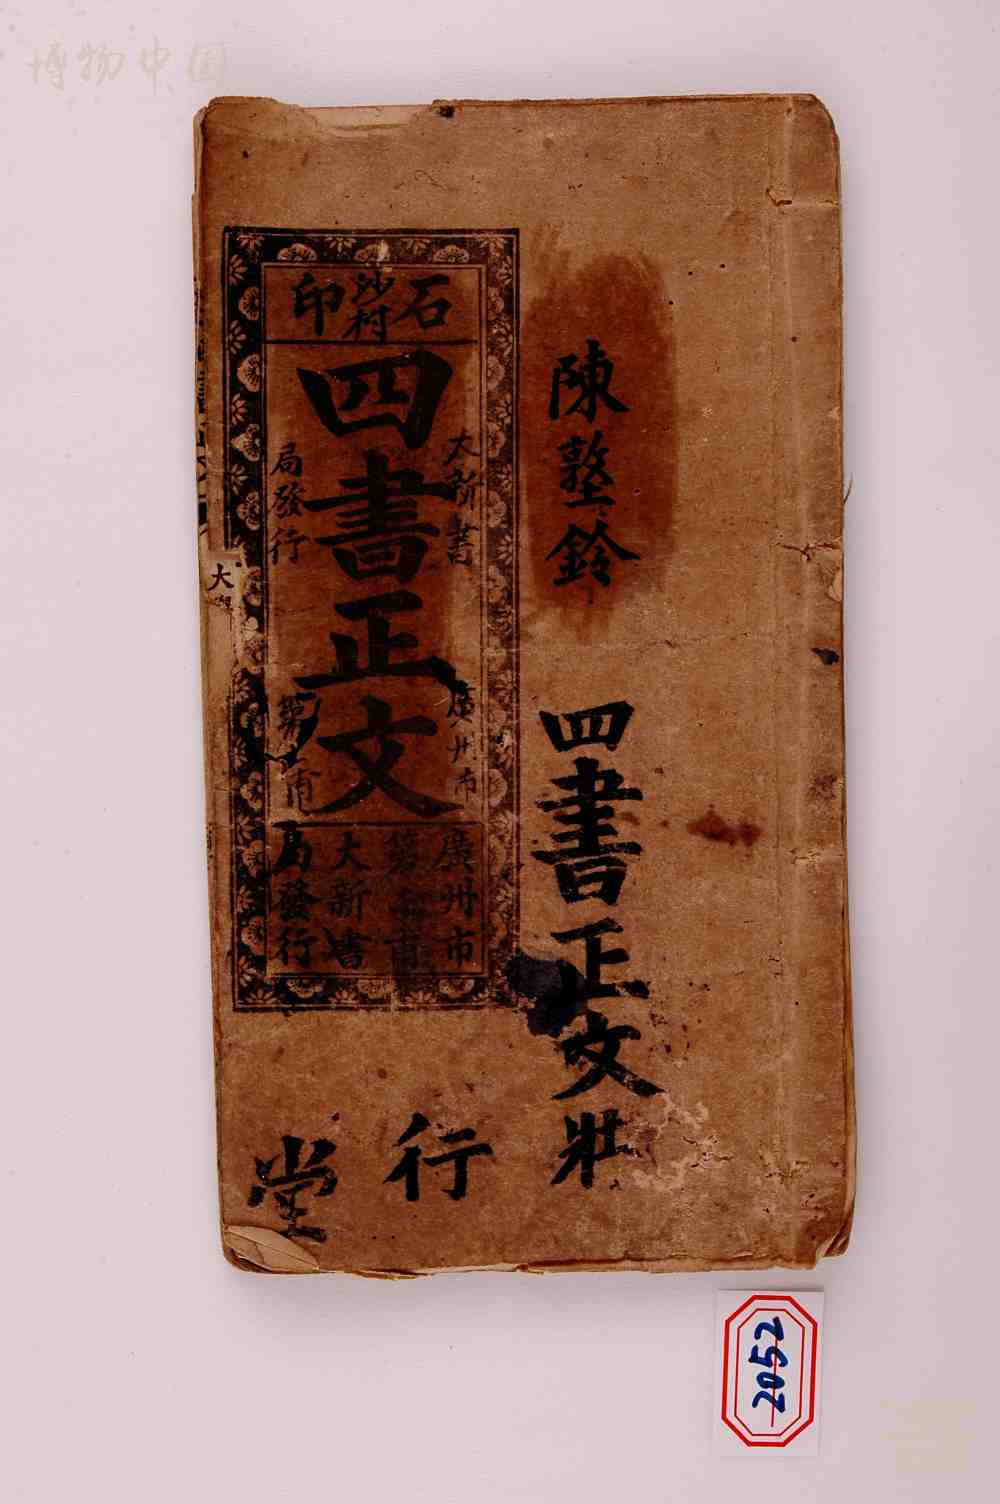 博物中国
石沙村印
四書正文
大新書
局發行
廣州市
第八甫
廣州市
第八甫
大新書
局發行
陳鈴
四書正文壯
行
堂
大
2052